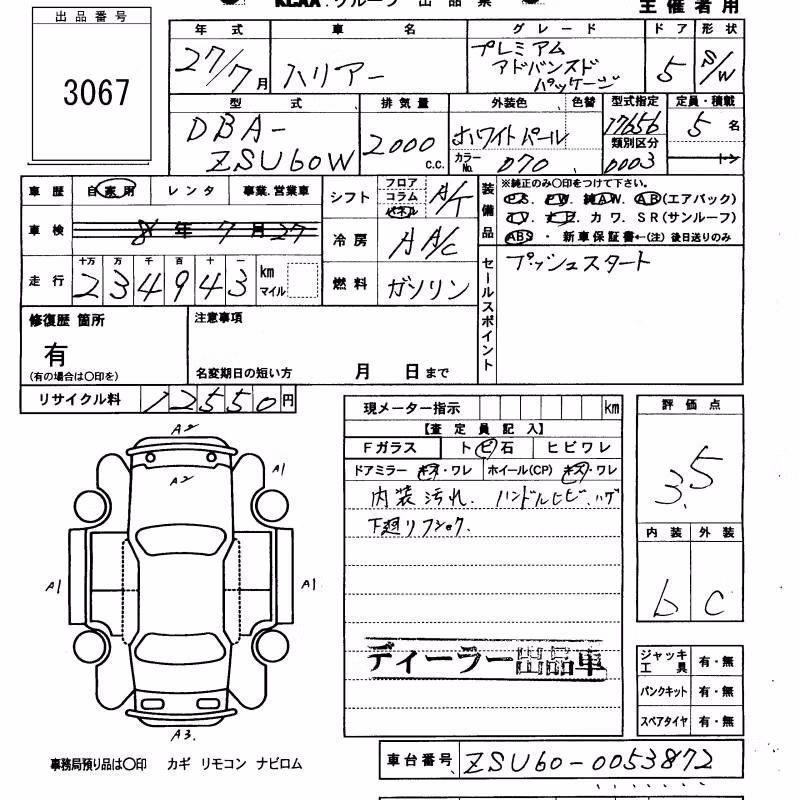 KCAA グループ 出品票
主催者用
出品番号
3067
年式 車名 グレード ドア 形状
27/7月 ハリアー プレミアム
アドバンスド
パッケージ
5 S/W
型式 排気量 外装色 色替 型式指定 定員・積載
DBA-
ZSU60W
2000 c.c.
ホワイトパール
カラーNo. 070
17656
類別区分
0003
5名
車歴 自家用 レンタ 事業.営業車
車検 8年7月27
走行 十万 万 千 百 十 一
234943 km マイル
シフト フロア コラム パネル A/T
冷房 AA/C
燃料 ガソリン
装備品
※純正のみ〇印をつけて下さい。
P.S. P.W. 純A.W. A.B(エアバック)
T.V. ナビ カワ. S R(サンルーフ)
ABS ・ 新車保証書←(注) 後日送りのみ
セールスポイント
プッシュスタート
修復歴 箇所
有
(有の場合は〇印を)
注意事項
名変期日の短い方 月 日まで
リサイクル料 12550円
現メーター指示 km
【査定員記入】
Fガラス トビ石 ヒビワレ
ドアミラー キズ・ワレ ホイール(CP) キズ・ワレ
内装汚れ. ハンドルヒビ.ハゲ
下廻リフショク.
ディーラー出品車
評価点
3.5
内装 外装
b C
ジャッキ工具 有・無
パンクキット 有・無
スペアタイヤ 有・無
A2
A2
A1
A1
A1
A3.
事務局預り品は〇印 カギ リモコン ナビロム
車台番号 ZSU60-0053872